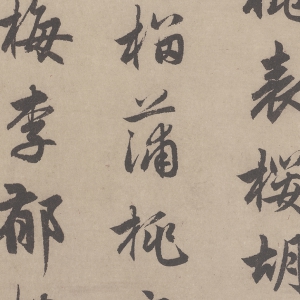 桃表櫻胡
榴蒲桃
梅李郁